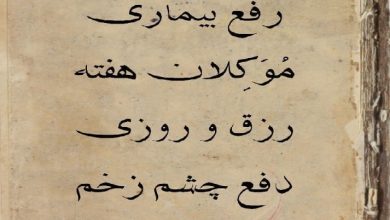 رفع بیماری
مُوَکِلان هفته
رزق و روزی
دفع چشم زخم